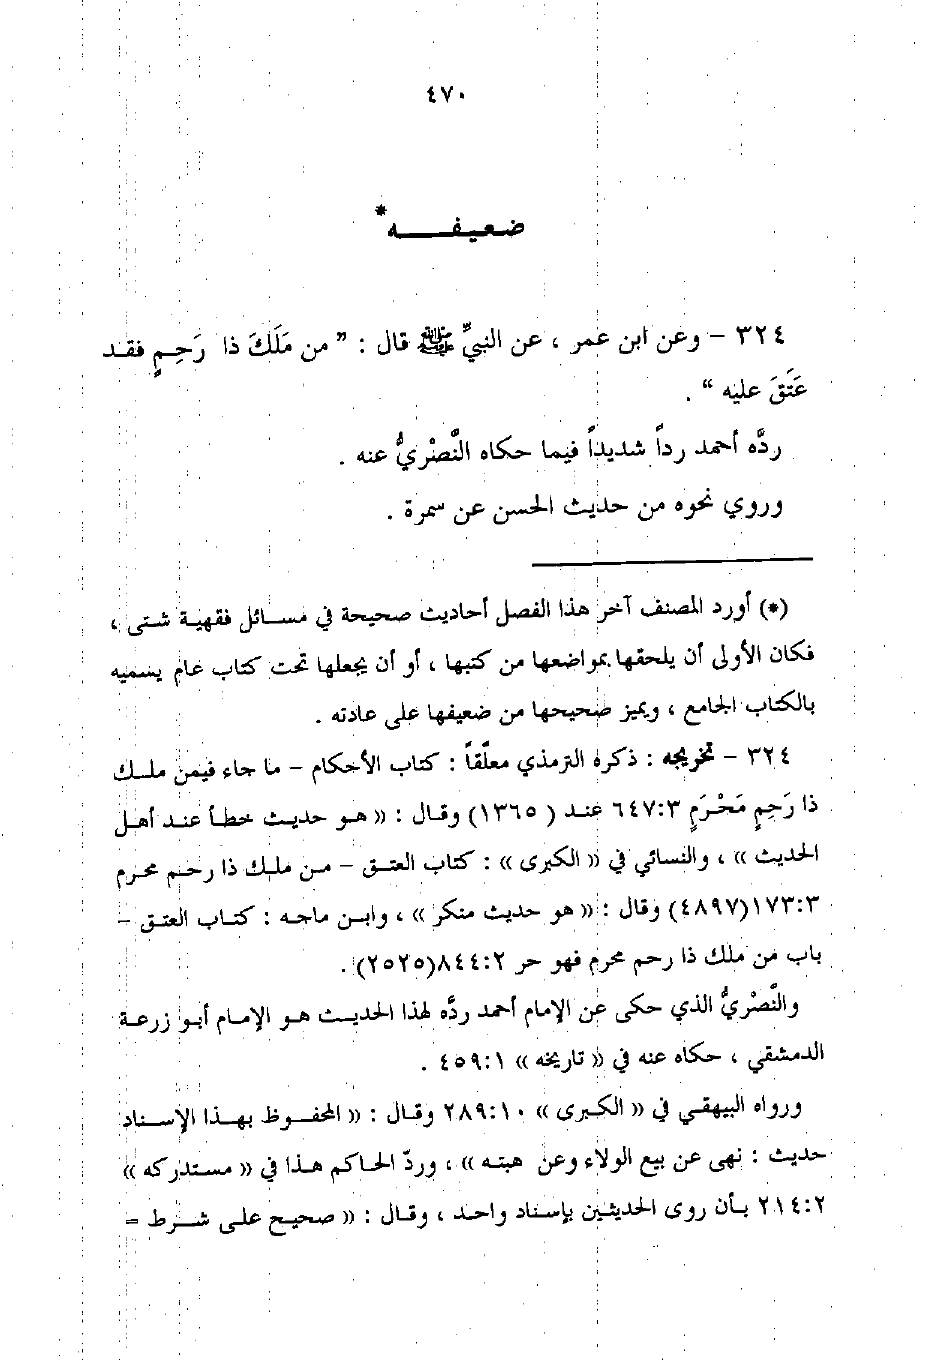 ٤٧٠
ضعيفـــــه*
٣٢٤ – وعن ابن عمر ، عن النبيِّ ﷺ قال : ” من مَلَكَ ذا رَحِـمٍ فقـد
عَتَقَ عليه “ .
ردَّه أحمد رداً شديداً فيما حكاه النَّصْريُّ عنه .
وروي نحوه من حديث الحسن عن سمرة .
(*) أورد المصنف آخر هذا الفصل أحاديث صحيحة في مسائل فقهية شتى ،
فكان الأولى أن يلحقها بمواضعها من كتبها ، أو أن يجعلها تحت كتاب عام يسميه
بالكتاب الجامع ، ويميز صحيحها من ضعيفها على عادته .
٣٢٤ – تخريجه : ذكره الترمذي معلّقاً : كتاب الأحكام – ما جاء فيمن ملك
ذا رَحِمٍ مَحْرَمٍ ٦٤٧:٣ عند ( ١٣٦٥) وقال : « هو حديث خطأ عند أهل
الحديث » ، والنسائي في « الكبرى » : كتاب العتق – من ملك ذا رحم محرم
١٧٣:٣(٤٨٩٧) وقال : « هو حديث منكر » ، وابن ماجه : كتاب العتق –
باب من ملك ذا رحم محرم فهو حر ٨٤٤:٢(٢٥٢٥) .
والنَّصْريُّ الذي حكى عن الإمام أحمد ردَّه لهذا الحديث هو الإمام أبو زرعة
الدمشقي ، حكاه عنه في « تاريخه » ٤٥٩:١ .
ورواه البيهقي في « الكبرى » ٢٨٩:١٠ وقال : « المحفوظ بهذا الإسناد
حديث : نهى عن بيع الولاء وعن هبته » ، وردّ الحاكم هذا في « مستدركه »
٢١٤:٢ بأن روى الحديثين بإسناد واحد ، وقال : « صحيح على شرط =